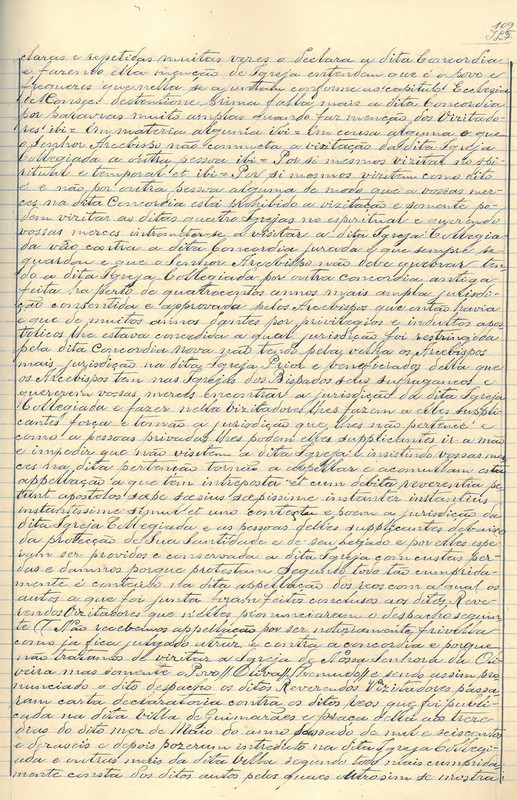 109
claras e repetidas muitas veres o declara a dita Concordia
e fazendo ella menção de Igreja entendem que é o povo e
freguezes que nella se a juntam conforme ao capitulo Ecclesia
de Consec: destinctione prima falla mais a dita Concordia
por palavras muito amplas quando faz menção dos Vizitado-
res ibi = Em materia alguma ibi = Em cousa alguma e que
o Senhor Arcebispo não commetta a vizitação da dita Igreja
Collegiada a outra pessoa ibi = Por si mesmos vizitar no spi-
ritual e temporal et ibi = Por si mesmos vizitem como dito
é e não por outra pessoa alguma de modo que a vossas mer-
ces na dita Concordia está prohibido a vizitação e somente po-
dem vizitar as ditas quatro Igrejas no espiritual e querendo
vossas merces intrometer-se a visitar a dita Igreja Collegia-
da vão contra a dita Concordia jurada e que sempre se
guardou e que o Senhor Arcebispo não deve quebrar ten-
do a dita Igreja Collegiada por outra concordia antiga
feita ha perto de quatrocentos annos mais ampla jurisdi-
ção consentida e approvada pelos Arcebispos que então havia
e que de muitos annos dantes por privilegios e indultos apos-
tolicos lhe estava concedida a qual jurisdição foi restringida
pela dita Concordia nova não tendo pela velha os Arcebispos
mais jurisdição na dita Igreja Prior e beneficiados della que
os Arcebispos tem nas Igrejas dos Bispados seus sufraganeos e
quererem vossas mercês encontrar a jurisdição da dita Igreja
Collegiada e fazer nella vizitadores lhes fazem a elles suppli-
cantes força e tomão a jurisdição que lhes não pertence e
como a pessoas privadas lhes podem elles supplicantes ir a mão
e impedir que não visitem a dita Igreja e insistindo vossas mer-
cês na dita pertenção tornão a appellar e acomulam esta
appellação a que tem interposta et cum debita reverentia pe-
tunt apostolos saepe saepius saepissime instanter instantius
instantissime simul et uno contextu e poem a jurisdição da
dita Igreja Collegiada e as pessoas delles supplicantes debaixo
da protecção de Sua Santidade e de seu legado e por elles espe-
ram ser providos e conservada a dita Igreja com custas per-
das e damnos porque protestam segundo todo tão cumprida-
mente é conteúdo na dita appellação dos reos com a qual os
autos a que foi junta foram feitos conclusos aos ditos Reve-
rendos Vizitadores que n'elles pronunciaram o despacho seguin-
te (Não recebemos appellação por ser notoriamente frivolla
como ja fica julgado atraz e contra a concordia e porque
não tratamos de vizitar a Igreja de Nossa Senhora da Oli-
veira mas somente o Povo
e sendo assim pro-
nunciado o dito despacho os ditos Reverendos Vizitadores passa-
ram carta declaratoria contra os ditos reos que foi publi-
cada na dita villa de Guimarães e praça della aos treze
dias do dito mez de Maio do anno passado de mil e seiscentos
e deraseis e depois pozeram intredicto na dita Igreja Collegi-
ada e outras mais da dita villa segundo todo mais cumprida-
mente consta dos ditos autos pelos quaes outrosim se mostra